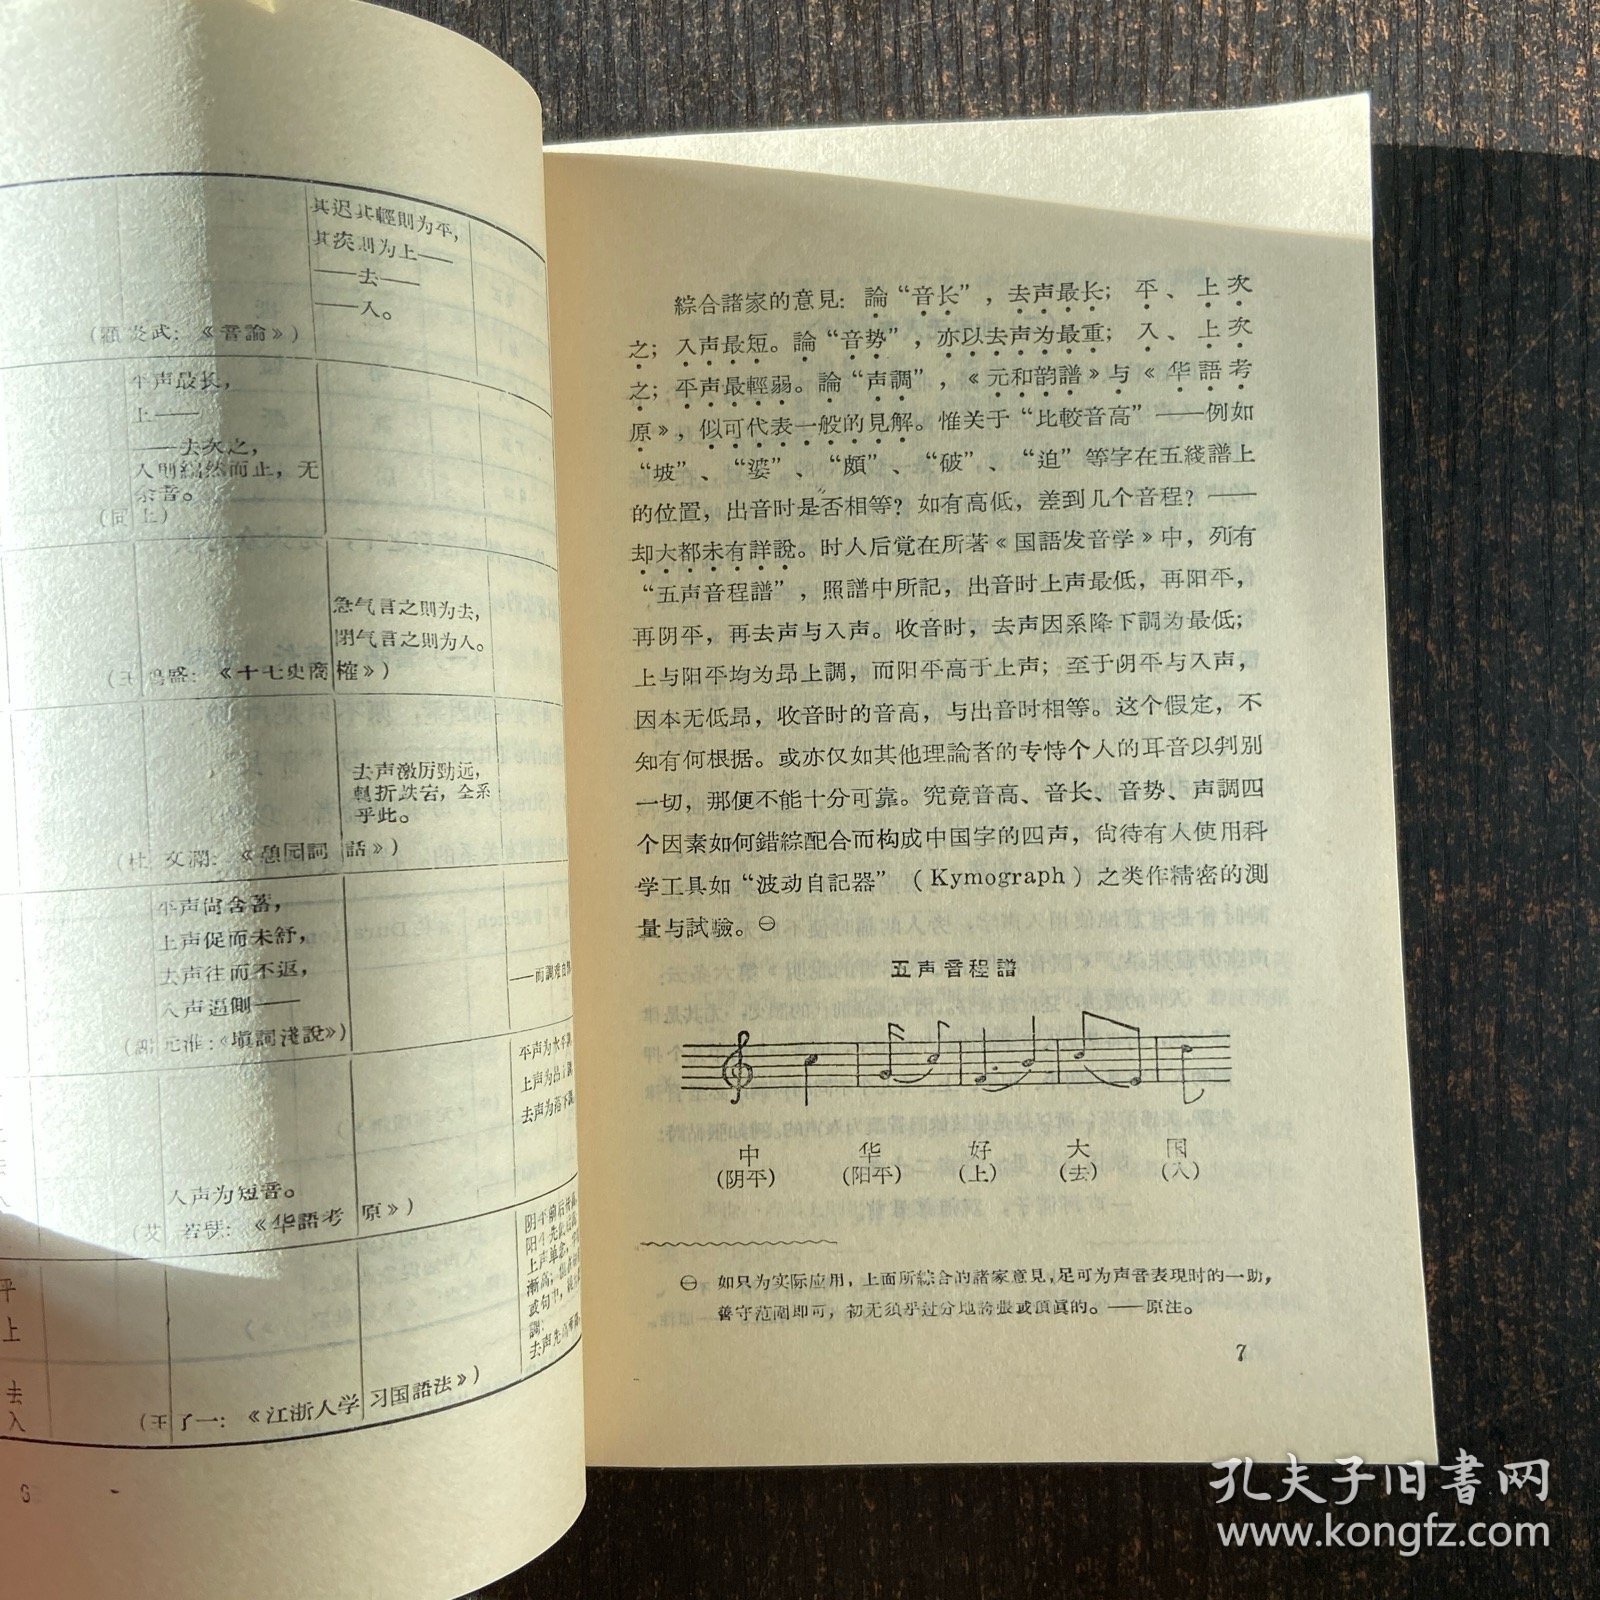 其迟其輕則为平，
其疾則为上——
——去——
——入。
（顧炎武：《音論》）
平声最长，
上——
——去次之，
入則 然而止，无
余音。
（同上）
急气言之則为去，
閉气言之則为入。
（王鳴盛：《十七史商榷》）
去声激厉勁远，
轉折跌宕，全系
乎此。
（杜文瀾：《憩园詞話》）
平声尙含蓄，
上声促而未舒，
去声往而不返，
入声逼側——
（謝元淮：《塡詞淺說》）
——而調难自
平声为水平調
上声为昂上調
去声为落下調
入声为短音。
（艾 若瑟：《华語考原》）
上声单念，
漸高；
或句中，
調：
平
上
去
入
（王了一：《江浙人学习国語法》）
6
綜合諸家的意見：論“音长”，去声最长；平、上次
之；入声最短。論“音势”，亦以去声为最重；入、上次
之；平声最輕弱。論“声調”，《元和韵譜》与《华語考
原》，似可代表一般的見解。惟关于“比較音高”——例如
“坡”、“婆”、“頗”、“破”、“迫”等字在五綫譜上
的位置，出音时是否相等？如有高低，差到几个音程？——
却大都未有詳說。时人后覚在所著《国語发音学》中，列有
“五声音程譜”，照譜中所記，出音时上声最低，再阳平，
再阴平，再去声与入声。收音时，去声因系降下調为最低；
上与阳平均为昂上調，而阳平高于上声；至于阴平与入声，
因本无低昂，收音时的音高，与出音时相等。这个假定，不
知有何根据。或亦仅如其他理論者的专恃个人的耳音以判別
一切，那便不能十分可靠。究竟音高、音长、音势、声調四
个因素如何錯綜配合而构成中国字的四声，尙待有人使用科
学工具如“波动自記器”（Kymograph）之类作精密的測
量与試驗。㊀
五声音程譜
中 华 好 大 国
（阴平） （阳平） （上） （去） （入）
㊀ 如只为实际应用，上面所綜合的諸家意見，足可为声音表現时的一助，
善守范圍即可，初无須乎过分地誇張或頂眞的。——原注。
7
孔夫子旧书网
www.kongfz.com